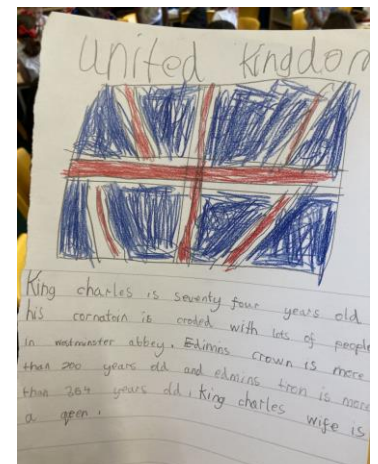 United Kingdom
King charles is seventy four years old
his cornatoin is croded with lots of people
in westminster abbey. Edimns crown is more
than 200 years old and edmins tron is more
than 364 years old. King charles wife is
a qeen.